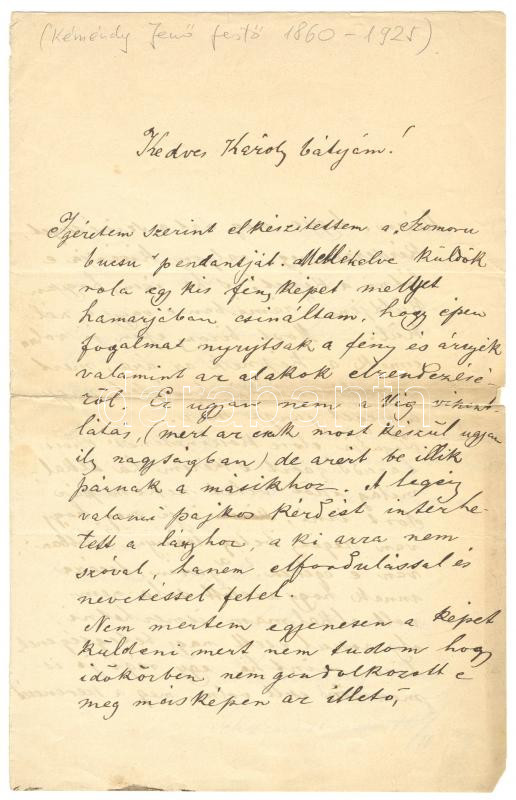 (Kéméndy Jenő festő 1860-1925)
Kedves Károly bátyám!
Igéretem szerint elkészitettem a "Szomoru
bucsu" pendantját. Mellékelve küldök
rola egy kis fényképet mellyet
hamarjában csináltam, hogy épen
fogalmat nyujtsak a fény és árnyék
valamint az alakok elrendezésé
ről. Ez ugyan nem a Vig viszont
látás, (mert az csak most készül ugyan
ily nagyságban) de azért be illik
párnak a másikhoz. A legény
valami pajkos kérdést intézhe-
tett a lányhoz, a ki arra nem
szóval, hanem elfordulással és
nevetéssel felel.
Nem mertem egyenesen a képet
küldeni mert nem tudom hogy
időkörben nem gondolkozott e
meg másképen az illető,
darabanth